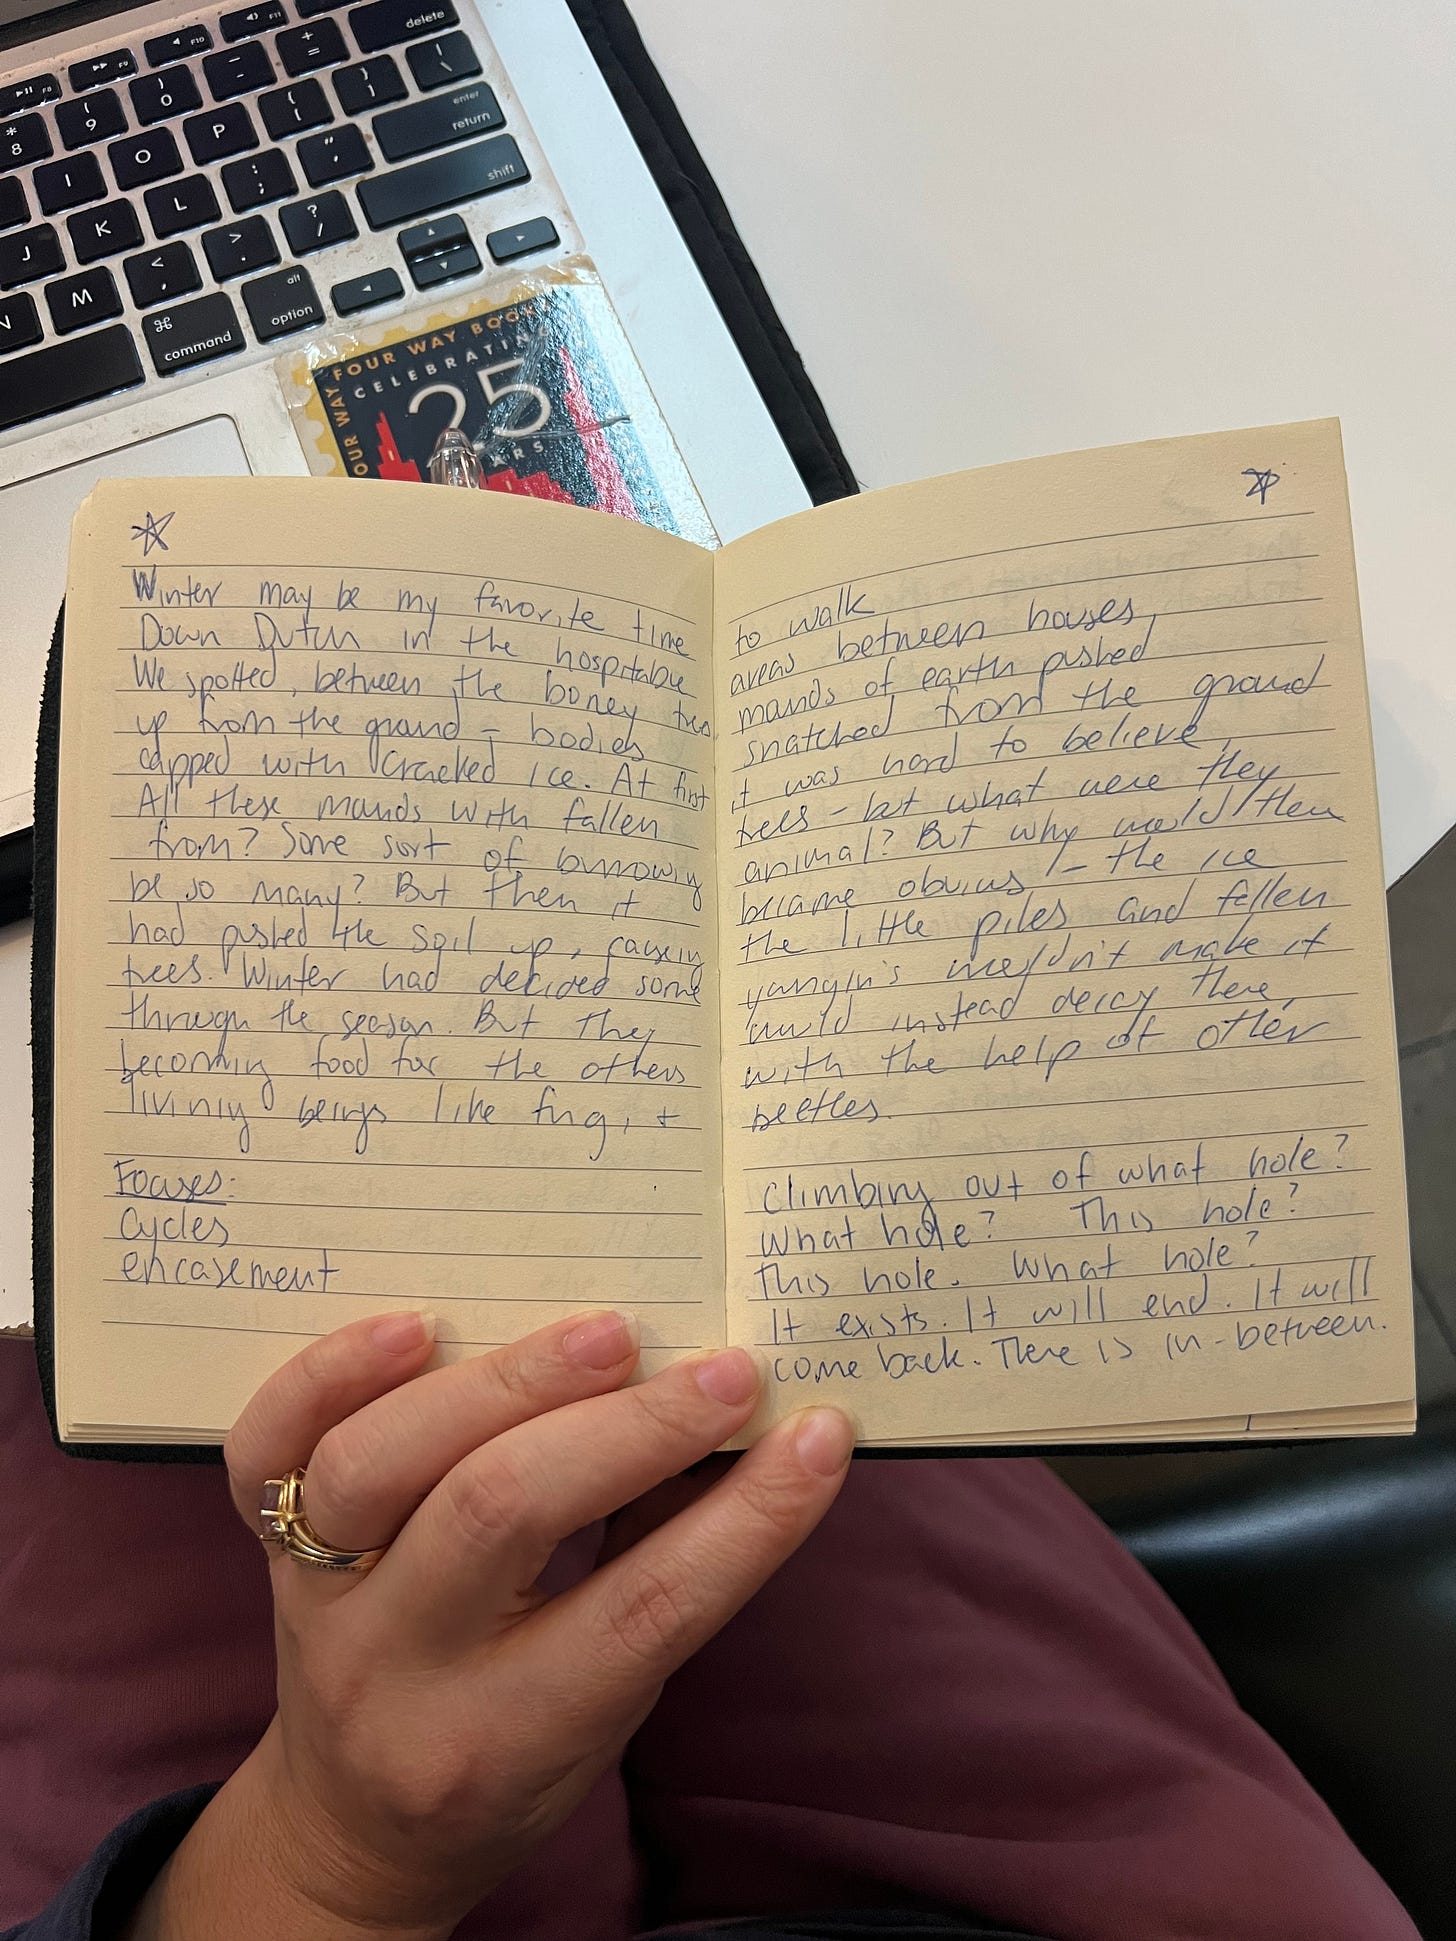 delete
F11
F10
F9
F8
+ =
_ -
) 0
( 9
* 8
| \
} ]
{ [
P
O
I
enter return
" '
: ;
L
K
J
shift
? /
> .
< ,
M
N
alt option
⌘ command
FOUR WAY BOOKS
CELEBRATING
25
YEARS
FOUR WAY
Winter may be my favorite time to walk
Down Dutch in the hospitable areas between houses,
We spotted, between the boney trees mounds of earth pushed
up from the ground – bodies snatched from the ground
capped with cracked ice. At first it was hard to believe,
All these mounds with fallen trees – but what were they
from? Some sort of burrowing animal? But why would there
be so many? But then it became obvious – the ice
had pushed the soil up, causing the little piles and fallen
trees. Winter had decided some youngin's wouldn't make it
through the season. But they would instead decay there,
becoming food for the others with the help of other
living beings like fungi + beetles.
Focuses:
Cycles
encasement
Climbing out of what hole?
What hole? This hole?
This hole. What hole?
It exists. It will end. It will
come back. There is in-between.